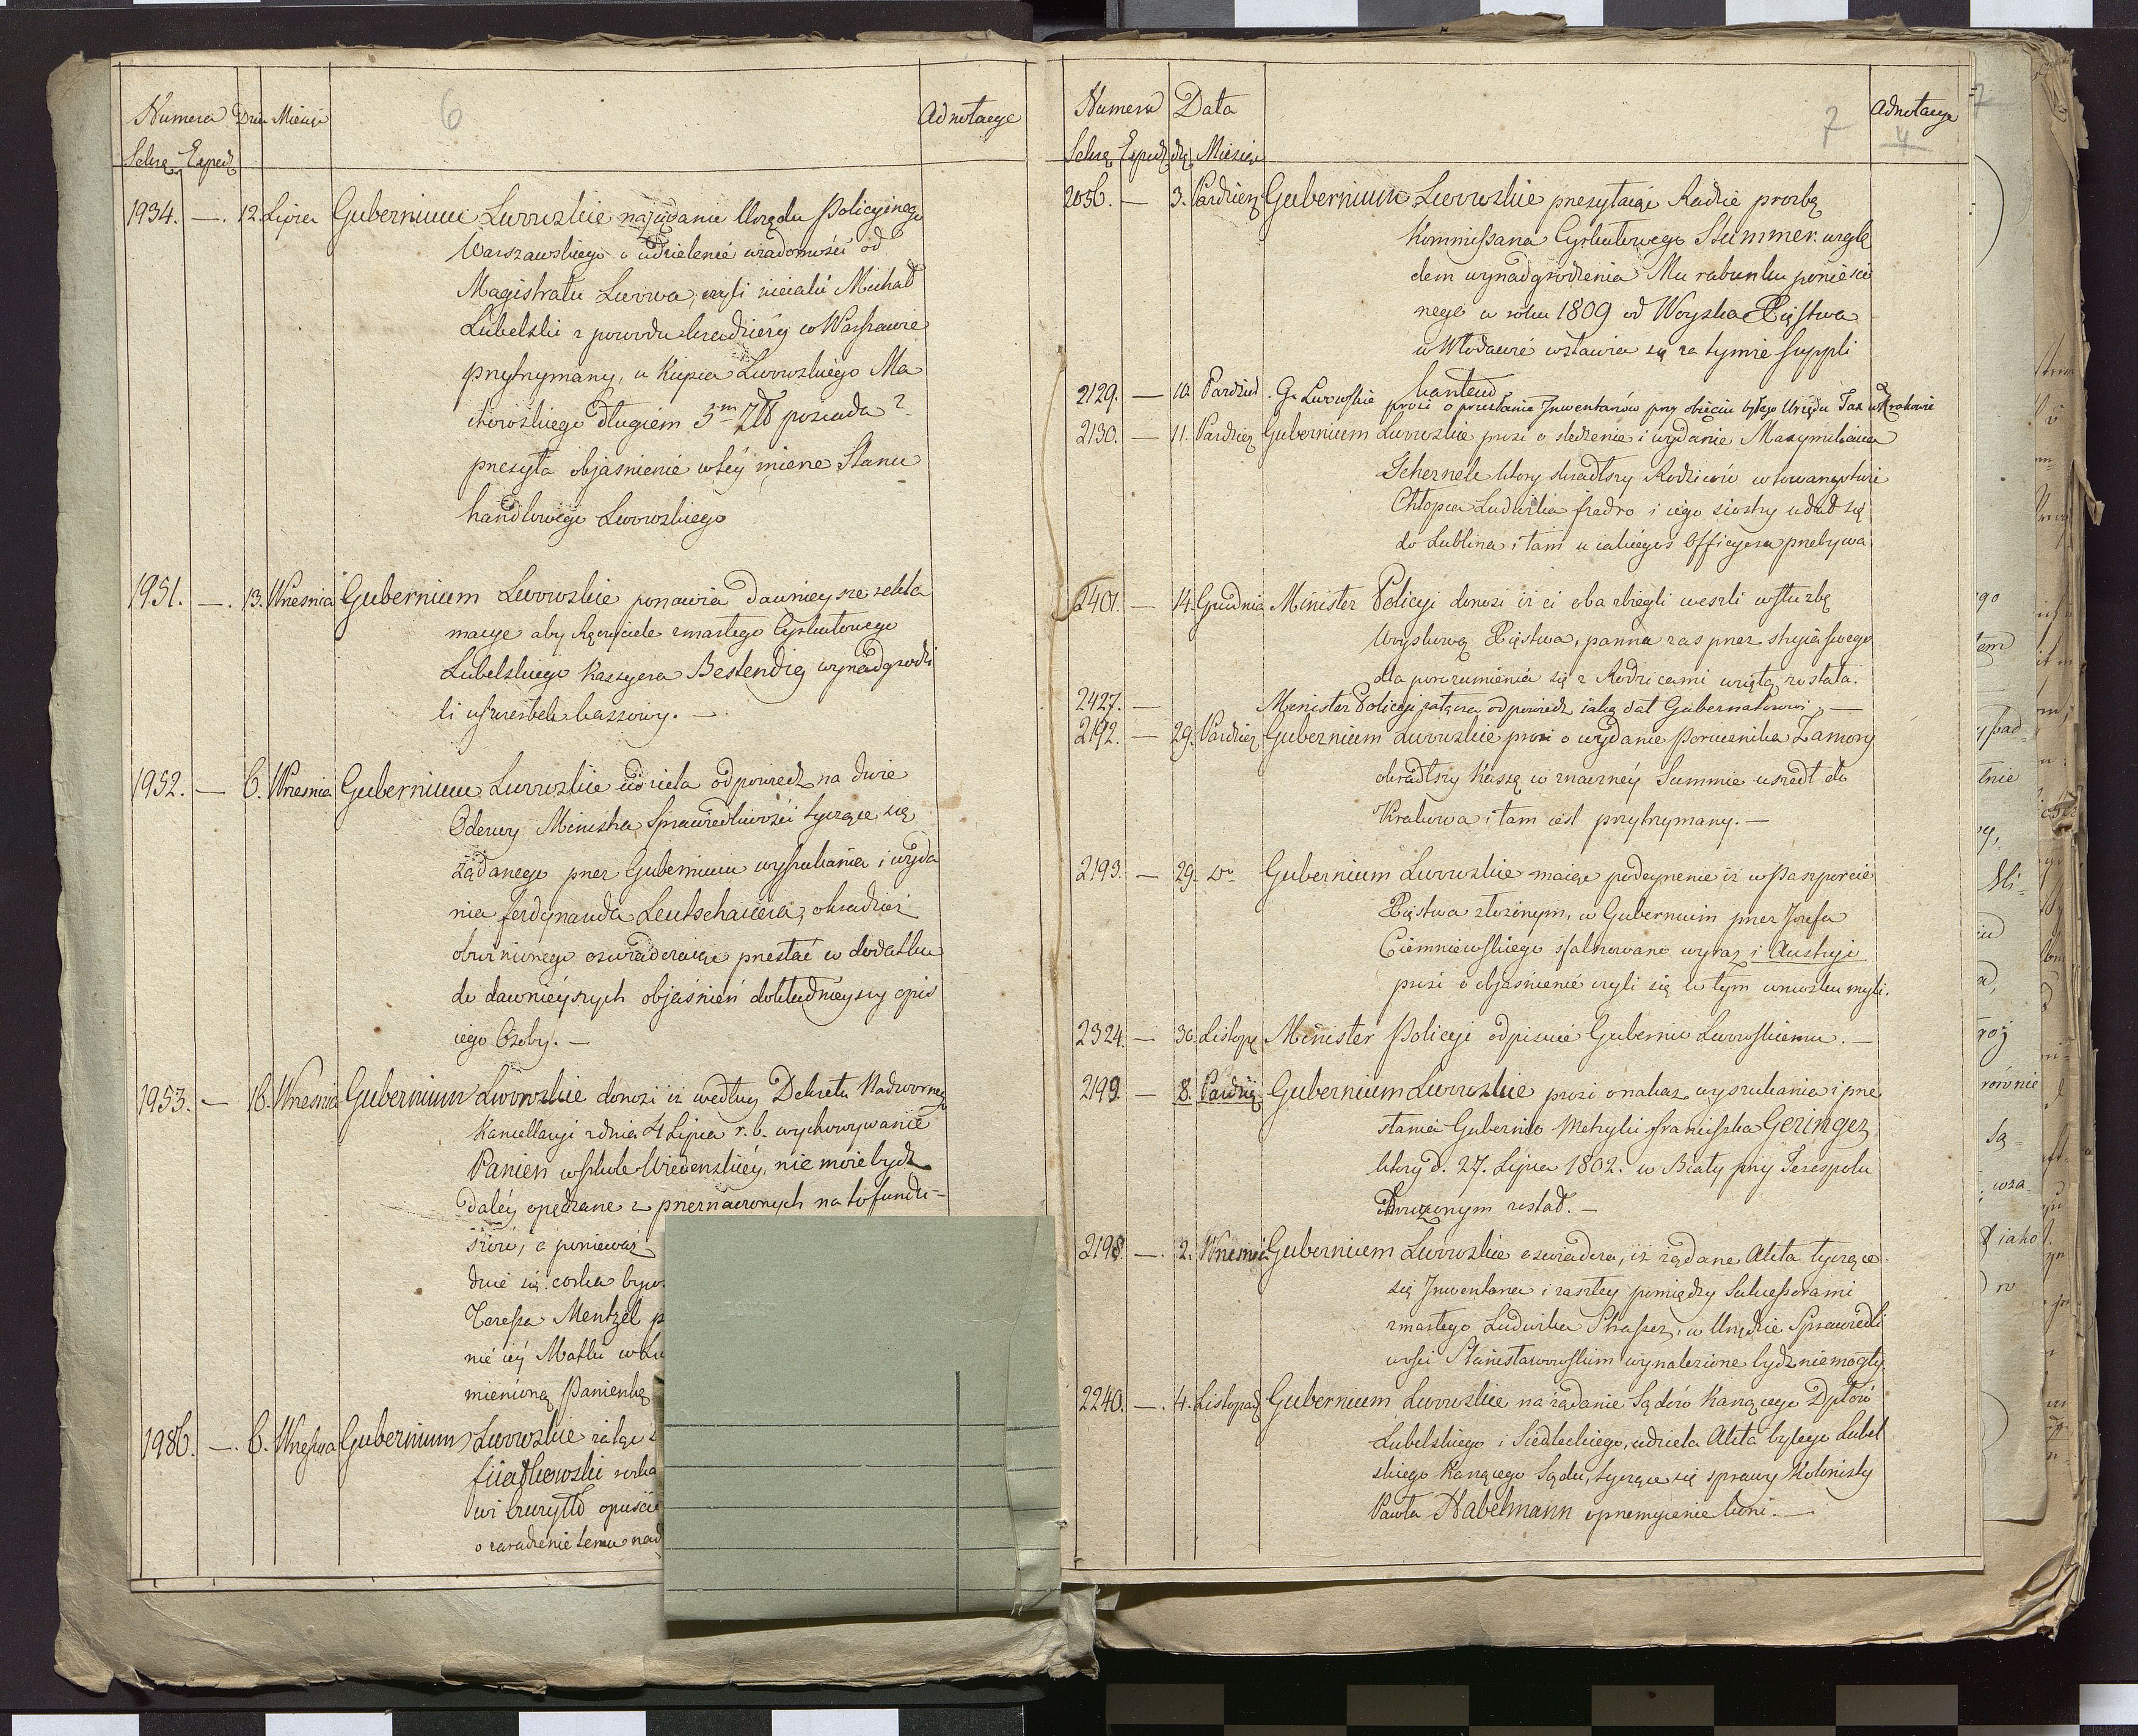 Numera Dzień Miesiąc 6 Adnotacye
Sekrę. Exped.
1934. —. 12. Lipca Gubernium Lwowskie na żądanie Urzędu Policyjnego
Warszawskiego o udzielenie wiadomości od
Magistratu Lwowa, czyli niejaki Michał
Lubelski z powodu kradzieży w Warszawie
przytrzymany, u Kupca Lwowskiego Ma
długiem 5m posiada?
przesyła objaśnienie w tey mierze Stanu
handlowego Lwowskiego
1951. —. 13. Wrzesnia Gubernium Lwowskie ponawia dawnieysze rekla
macye aby Ręczyciele zmarłego Cyrkułowego
Lubelskiego Kassyera Bestendig wynadgrodzi
li uszczerbek kassowy. —
1952. — 6. Wrzesnia Gubernium Lwowskie udziela odpowiedź na dwie
Odezwy Ministra Sprawiedliwości tyczące się
żądanego przez Gubernium wyszukania i wyda
nia ferdynanda Leutschauera, o kradzież
obwinionego oswiadczaiąc przesłać w dodatku
do dawnieyszych objaśnień dokładnieyszy opis
iego Osoby. —
1953. — 16. Wrzesnia Gubernium Lwowskie donosi iż według Dekretu Nadwornego
Kancellaryi z dnia 4 Lipca r. b. wychowywanie
Panien w szkole Wiedenskiéy, nie może bydź
daléy opędzane z przeznaczonych na to fundu-
szów, a ponieważ
duie się corka byłe
Teressa Mentzel p
nié iéy Matki w
mienioną Panienkę
1986. —. 6. Wrzesnia Gubernium Lwowskie żaląc
opuści
o zaradzenie temu nad
Numera Data 7 Adnotacye
4
Sekrę Exped. dzi. Miesiąc
2056. — 3. Pazdzier Gubernium Lwowskie przesyłaiąc Radzie prozbę
Kommissarza Cyrkułowego Stummer. wzglę
dem wynadgrodzenia Mu rabunku poniesio
nego w roku 1809 od Woyska Xięstwa
w Włodawie wstawia się za tymże suppli
kantem
2129. — 10. Pazdzier. G. Lwowskie prosi o przesłanie Inwentarzów przy obięciu byłego Urzędu Tax w Krakowie
2130. — 11. Pazdzier Gubernium Lwowskie prosi o sledzenie i wydanie Maxymiliana
Tchernek ktory skradłszy Rodziców w towarzystwie
Chłopca Ludwika fredro i iego siostry udał się
do Lublina i tam u iakiegoś Officyera przebywa
2401. — 14. Grudnia Minister Policyi donosi iż ci oba zbiegli weszli w służbę
Woyskową Xięstwa, panna zas przez stryia swego
dla porozumienia się z Rodzicami wziętą została.
2427. — Minister Policyi załącza odpowiedź iaką dał Gubernatorowi. —
2192. — 29. Pazdzier Gubernium Lwowskie prosi o wydanie Porucznika Zamory
okradłszy Kassę w znaczney Summie uszedł do
Krakowa i tam iest przytrzymany. —
2193. — 29. do Gubernium Lwowskie maiąc podeyrzenie iż w Paszporcie
Xięstwa złożonym, w Gubernium przez Jozefa
Ciemniewskiego sfałszowano wyraz i Austryi
prosi o objaśnienie czyli się w tym wniosku myli.
2324. — 30. Listop. Minister Policyi odpisuie Gubernio Lwowskiemu. —
2199 — 8. Pazdzie Gubernium Lwowskie prosi o nakaz wyszukania i prze
słania Gubernio Metryki franciszka Geringer
ktory d. 27. Lipca 1802. w Biały przy Terespolu
został. —
2198. —. 2. Wrzesnia Gubernium Lwowskie oswiadcza, iż żądane Akta tyczące
się Inwentarza i zaszłey pomiędzy Sukcessorami
zmarłego Ludwika Strasser, w Urzędzie Sprawiedli
wości Stanisławowskim wynalezione bydź niemogły
2240. —. 4. Listopad Gubernium Lwowskie na żądanie Sądów Karzącego Dptów
Lubelskiego i Siedleckiego, udziela Akta byłego Lubel
skiego Karzącego Sądu, tyczące się sprawy Kolonisty
Pawła Habelmann o przemycenie koni. —